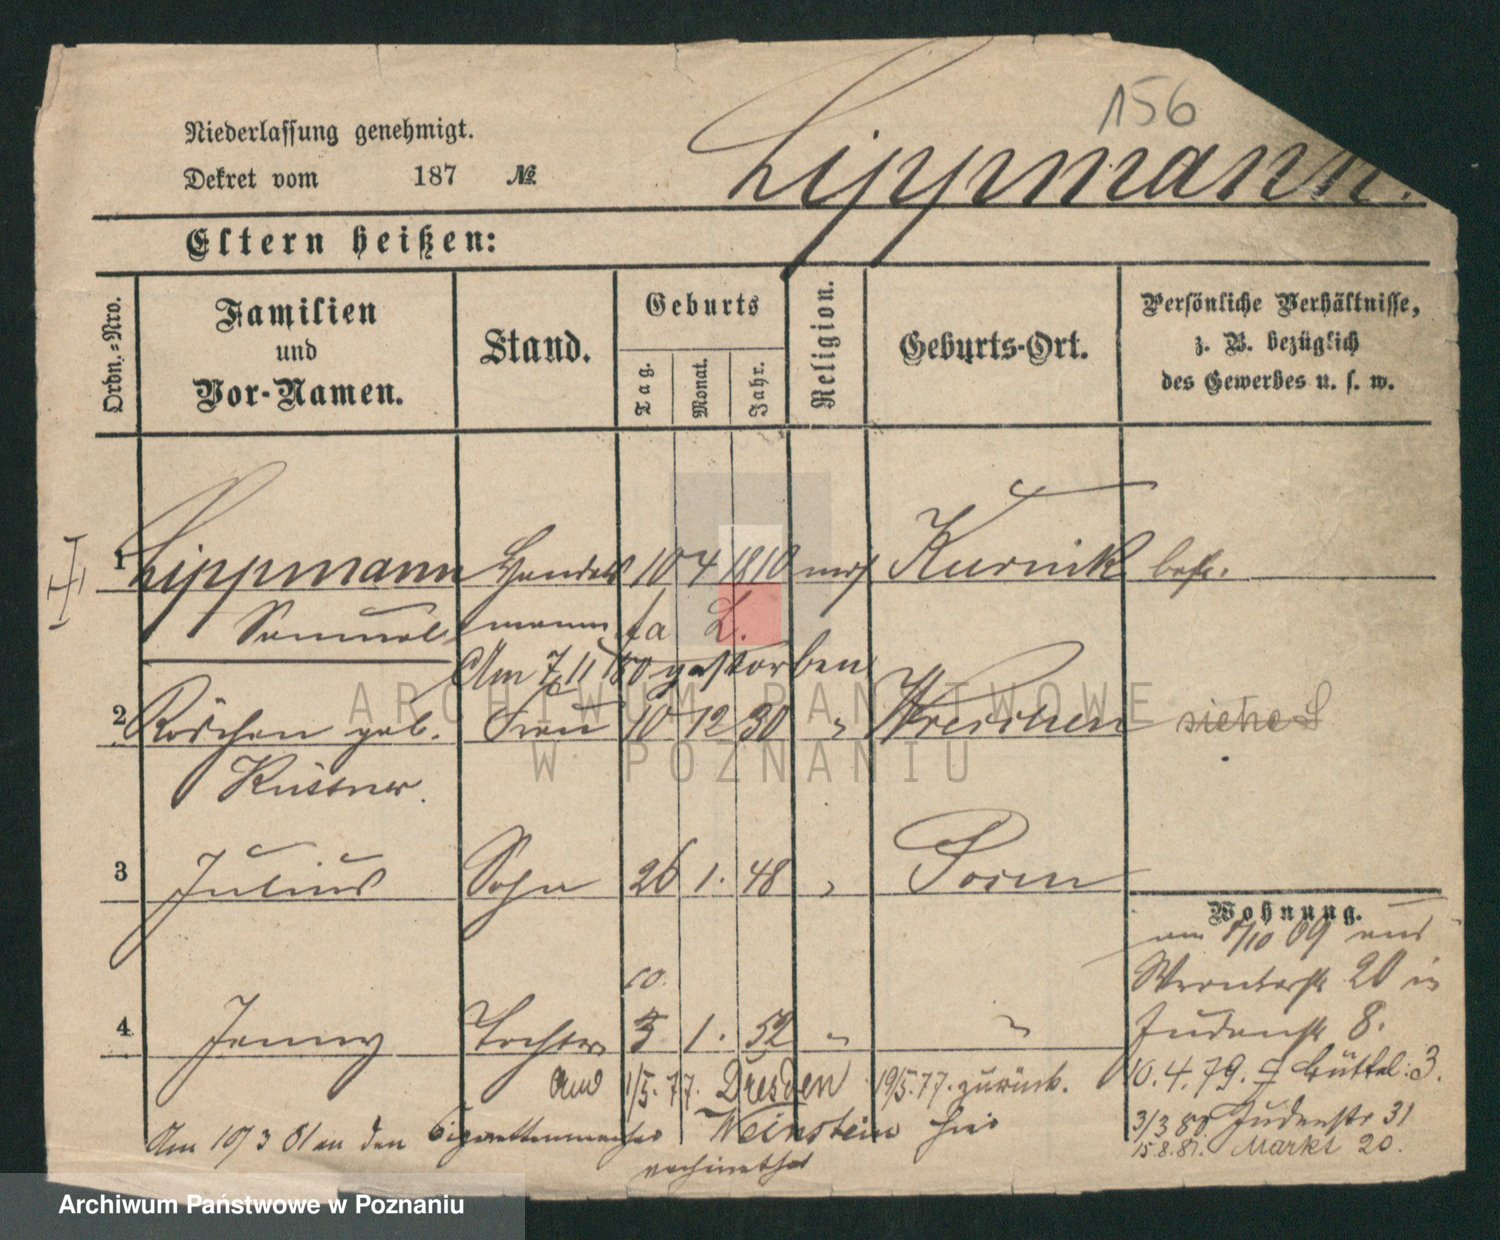 156
Niederlassung genehmigt.
Dekret vom 187 №
Lippmann.
Eltern heißen:
Ordn.-Nro.
Familien
und
Vor-Namen.
Stand.
Geburts
Tag.
Monat.
Jahr.
Religion.
Geburts-Ort.
Persönliche Verhältnisse,
z. B. bezüglich
des Gewerbes u. s. w.
1 Lippmann Handels 10 4 1810 mos Kurnik
Samuel mann L.
Am 7/11 80 gestorben
2 Röschen geb. Frau 10 12 30 " Wreschen siehe L
Küstner.
3 Julius Sohn 26 1. 48 " Posen
Wohnung.
am 1/10 69 aus
20 in
Judenstr 8.
10.
4 Jenny Tochter 3 1. 52 " "
1/5. 77. Dresden 19/5. 77. zurück.
10.4.79. Büttel: 3.
Am 19/3 81 an den Cigarettenmacher Weinstein hier
verheirathet
3/3 80 Judenstr 31
15.8.81. Markt 20.
ARCHIWUM PAŃSTWOWE
W POZNANIU
Archiwum Państwowe w Poznaniu